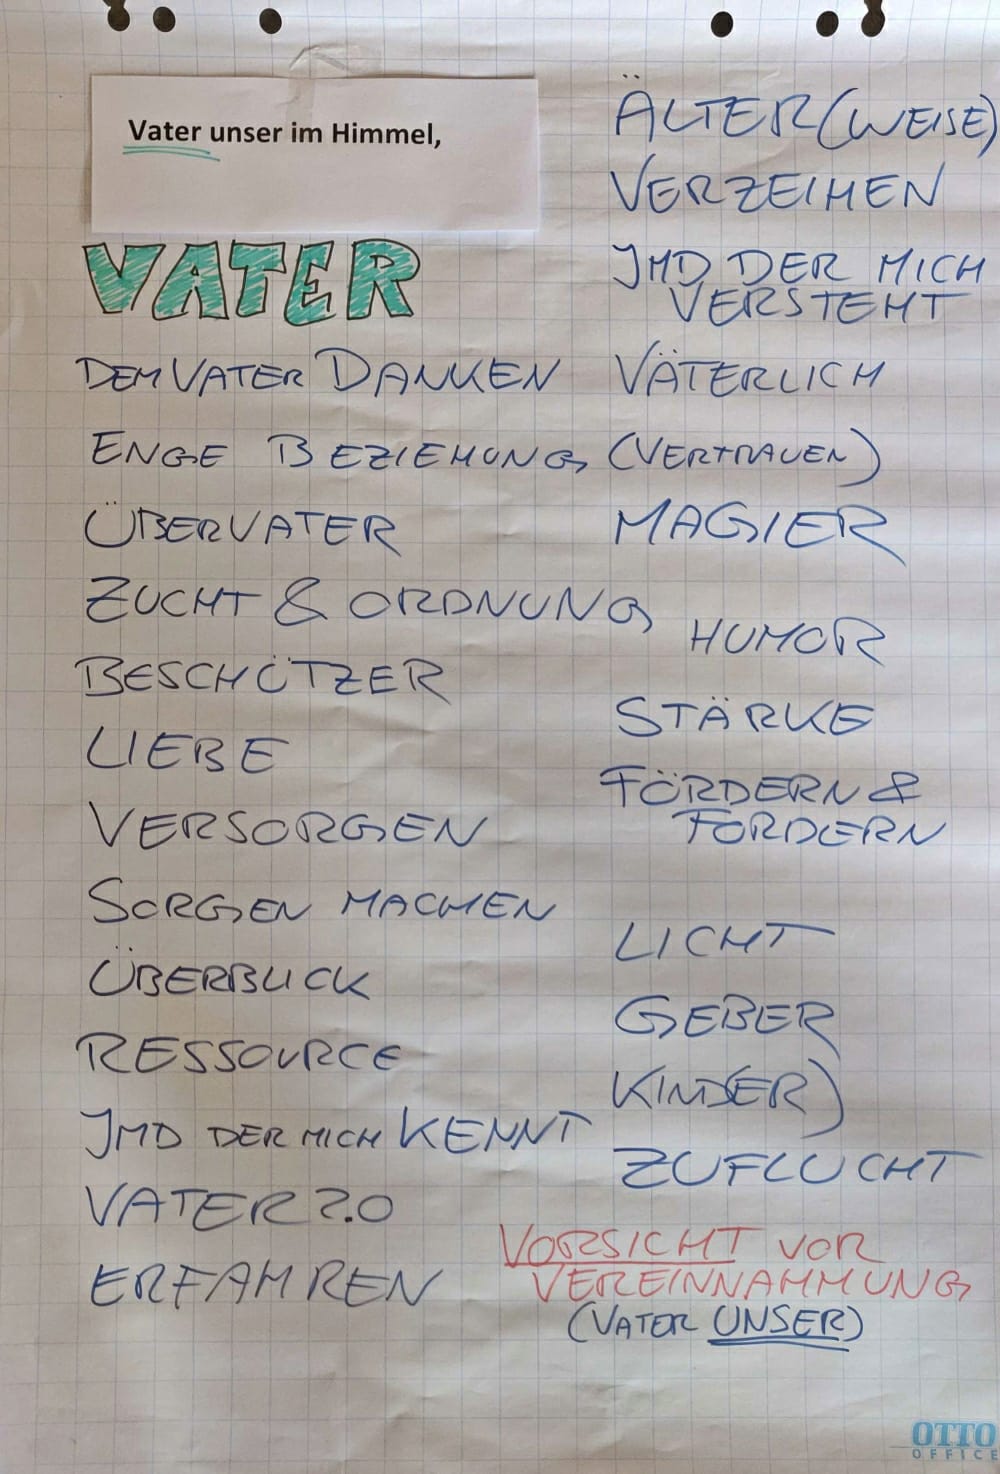 Vater unser im Himmel,
VATER
DEM VATER DANKEN
ENGE BEZIEHUNG (VERTRAUEN)
ÜBERVATER
ZUCHT & ORDNUNG
BESCHÜTZER
LIEBE
VERSORGEN
SORGEN MACHEN
ÜBERBLICK
RESSOURCE
JMD DER MICH KENNT
VATER 2.0
ERFAHREN
ÄLTER (WEISE)
VERZEIHEN
JMD DER MICH
VERSTEHT
VÄTERLICH
MAGIER
HUMOR
STÄRKE
FÖRDERN &
FORDERN
LICHT
GEBER
KIND(ER)
ZUFLUCHT
VORSICHT VOR
VEREINNAHMUNG
(VATER UNSER)
OTTO
OFFICE